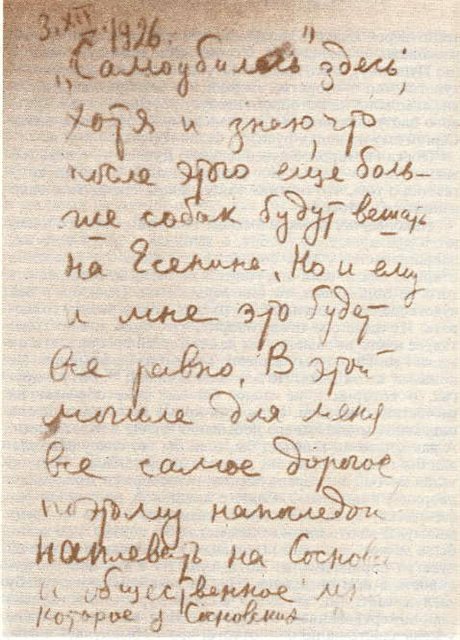 3.XII 1926.
„Самоубилась" здесь,
хотя и знаю, что
после этого еще боль-
ше собак будут вешать
на Есенина. Но и ему
и мне это будет
все равно. В этой
могиле для меня
все самое дорогое,
поэтому напоследок
наплевать на Соснов
и общественное
которое у Сосновских